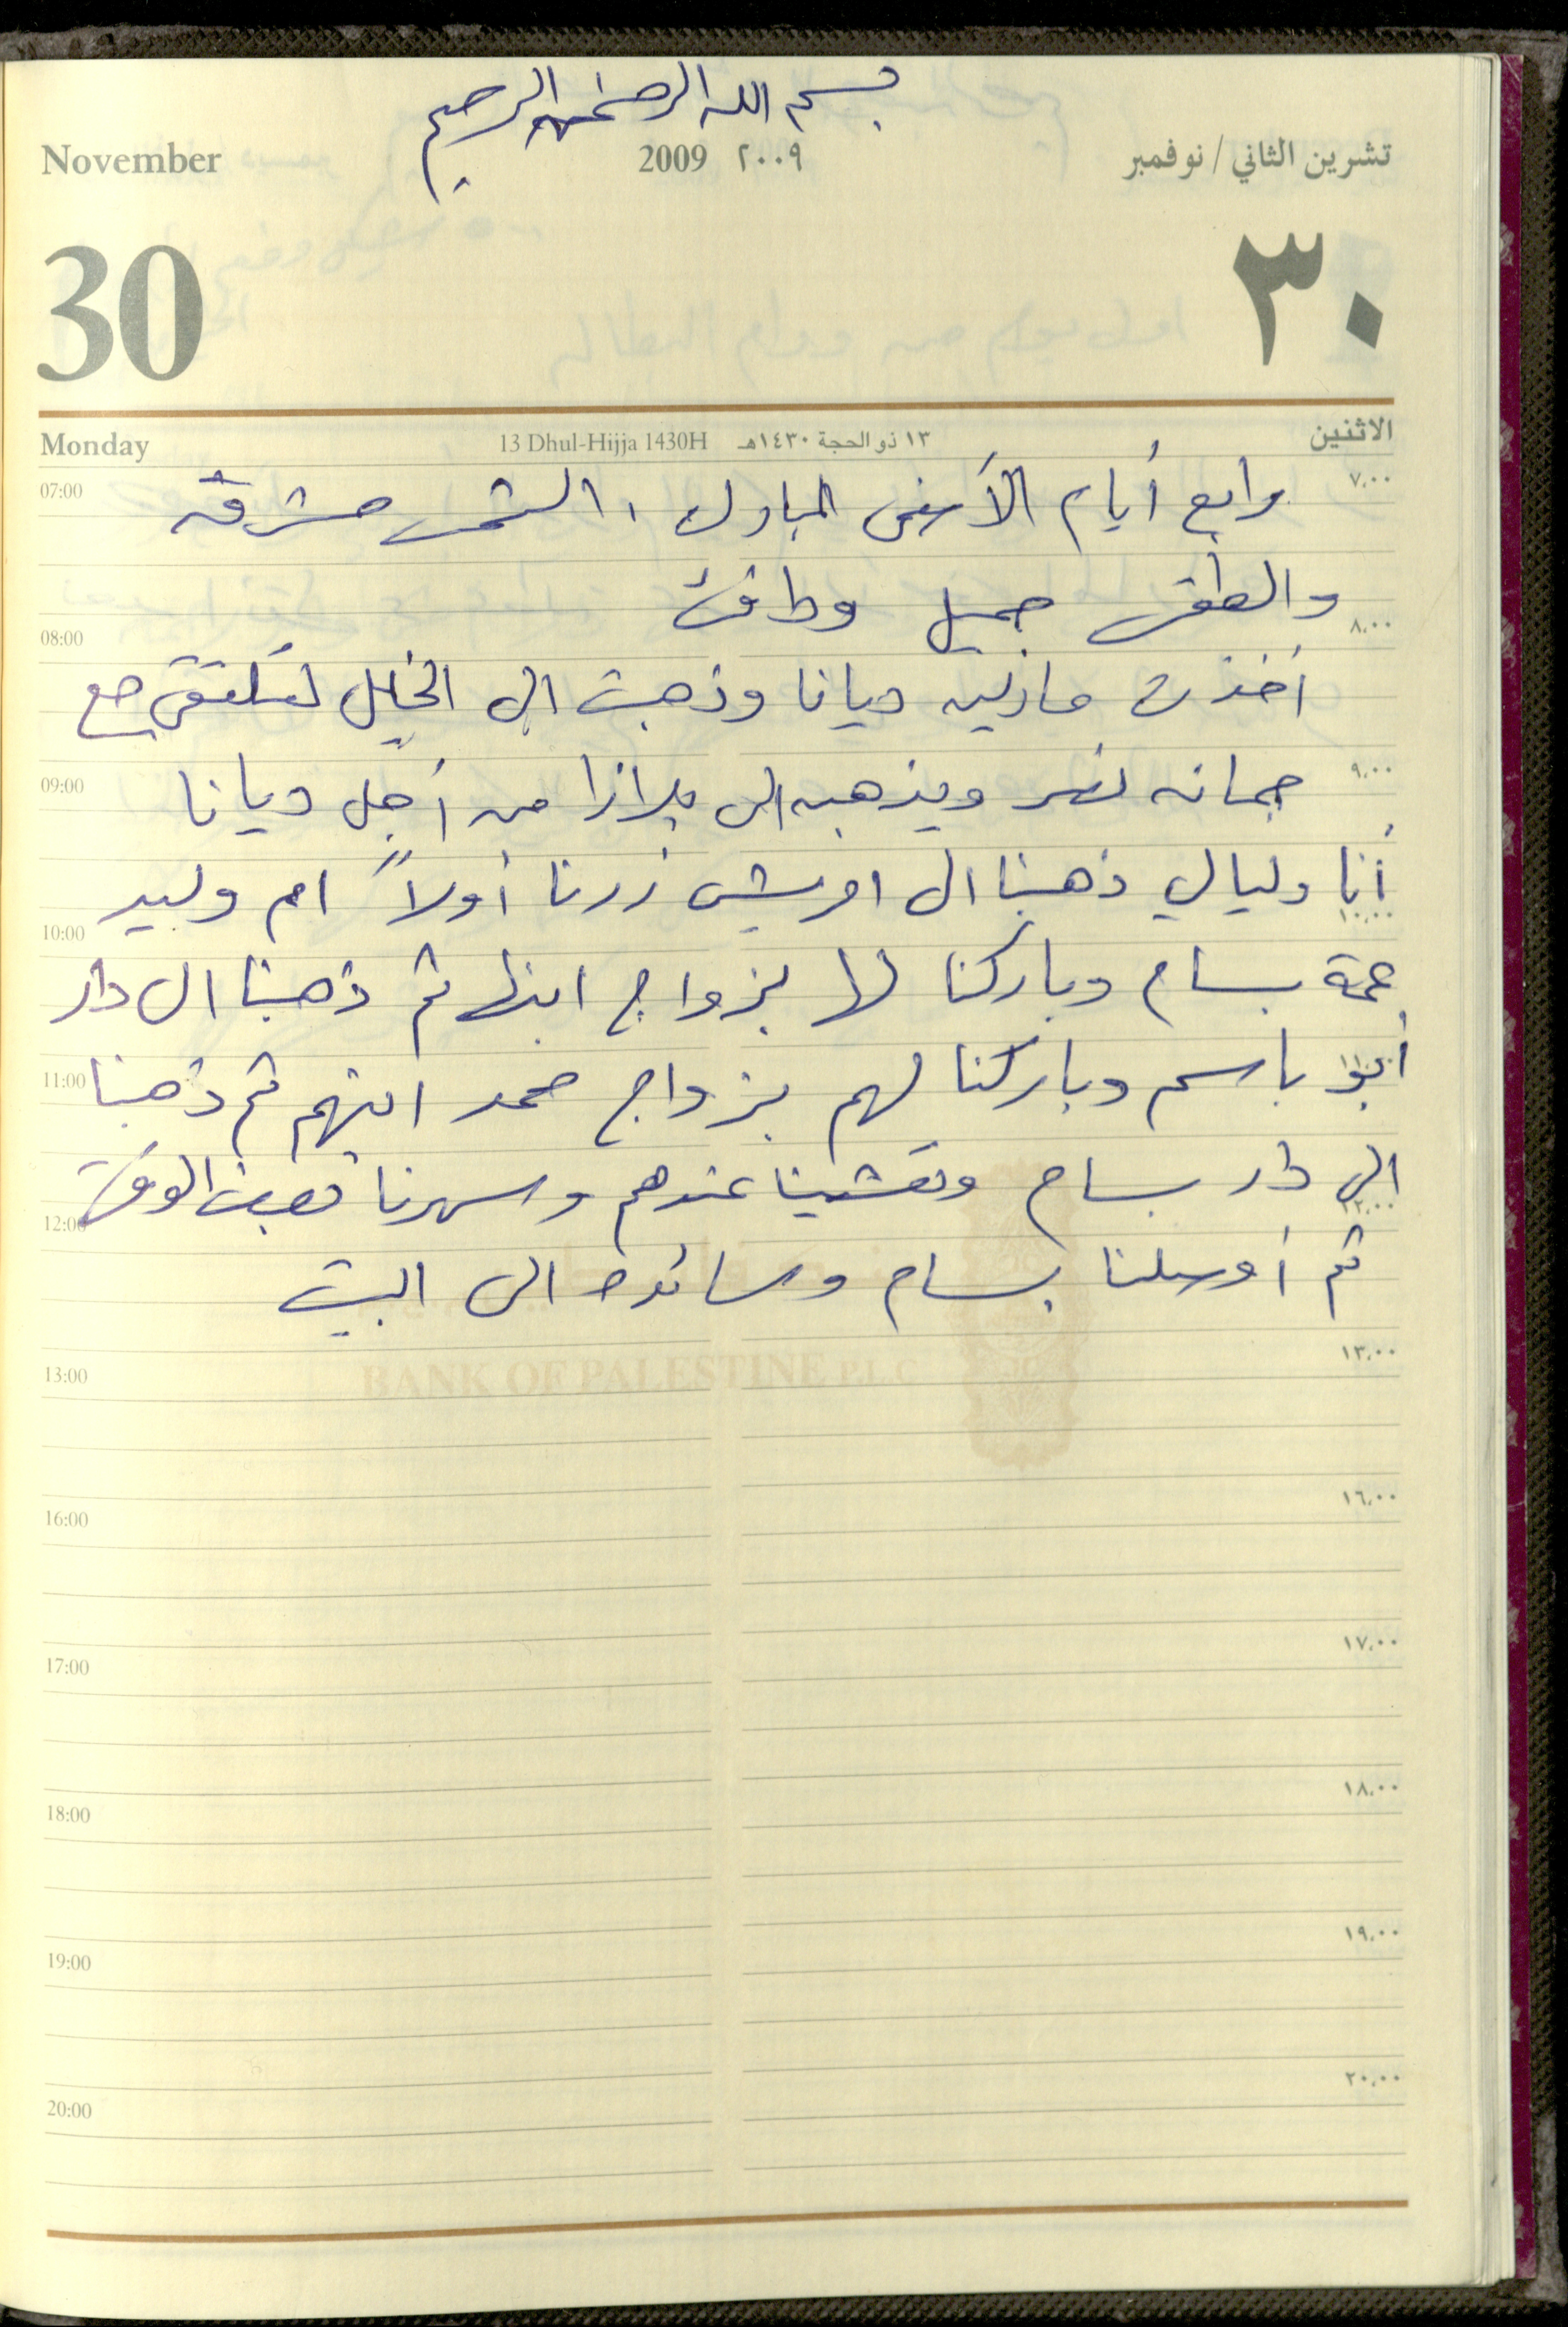 بسم الله الرحمن الرحيم
November 2009 ٢٠٠٩ تشرين الثاني / نوفمبر
30 ٣٠
Monday 13 Dhul-Hijja 1430H ١٣ ذو الحجة ١٤٣٠هـ الاثنين
07:00 ٧،٠٠
رابع أيام الأضحى المبارك، الشمس مشرقة
والطقس جميل ودافئ
08:00 ٨،٠٠
أخذت مارلين ديانا وذهبت الى الخليل لتلتقي مع
09:00 ٩،٠٠
جمانه نصر ويذهبن الى بلازا من أجل ديانا
أنا وليالي ذهبنا الى امريش زرنا أولاً ام وليد
10:00 ١٠،٠٠
عمة بسام وباركنا لها بزواج ابنها ثم ذهبنا الى دار
11:00
أبو باسم وباركنا لهم بزواج محمد ابنهم ثم ذهبنا
الى دار بسام وتعشينا عندهم وسهرنا بعض الوقت
12:00 ١٢،٠٠
ثم أوصلنا بسام وسائده الى البيت
BANK OF PALESTINE P.L.C
13:00 ١٣،٠٠
16:00 ١٦،٠٠
17:00 ١٧،٠٠
18:00 ١٨،٠٠
19:00 ١٩،٠٠
20:00 ٢٠،٠٠